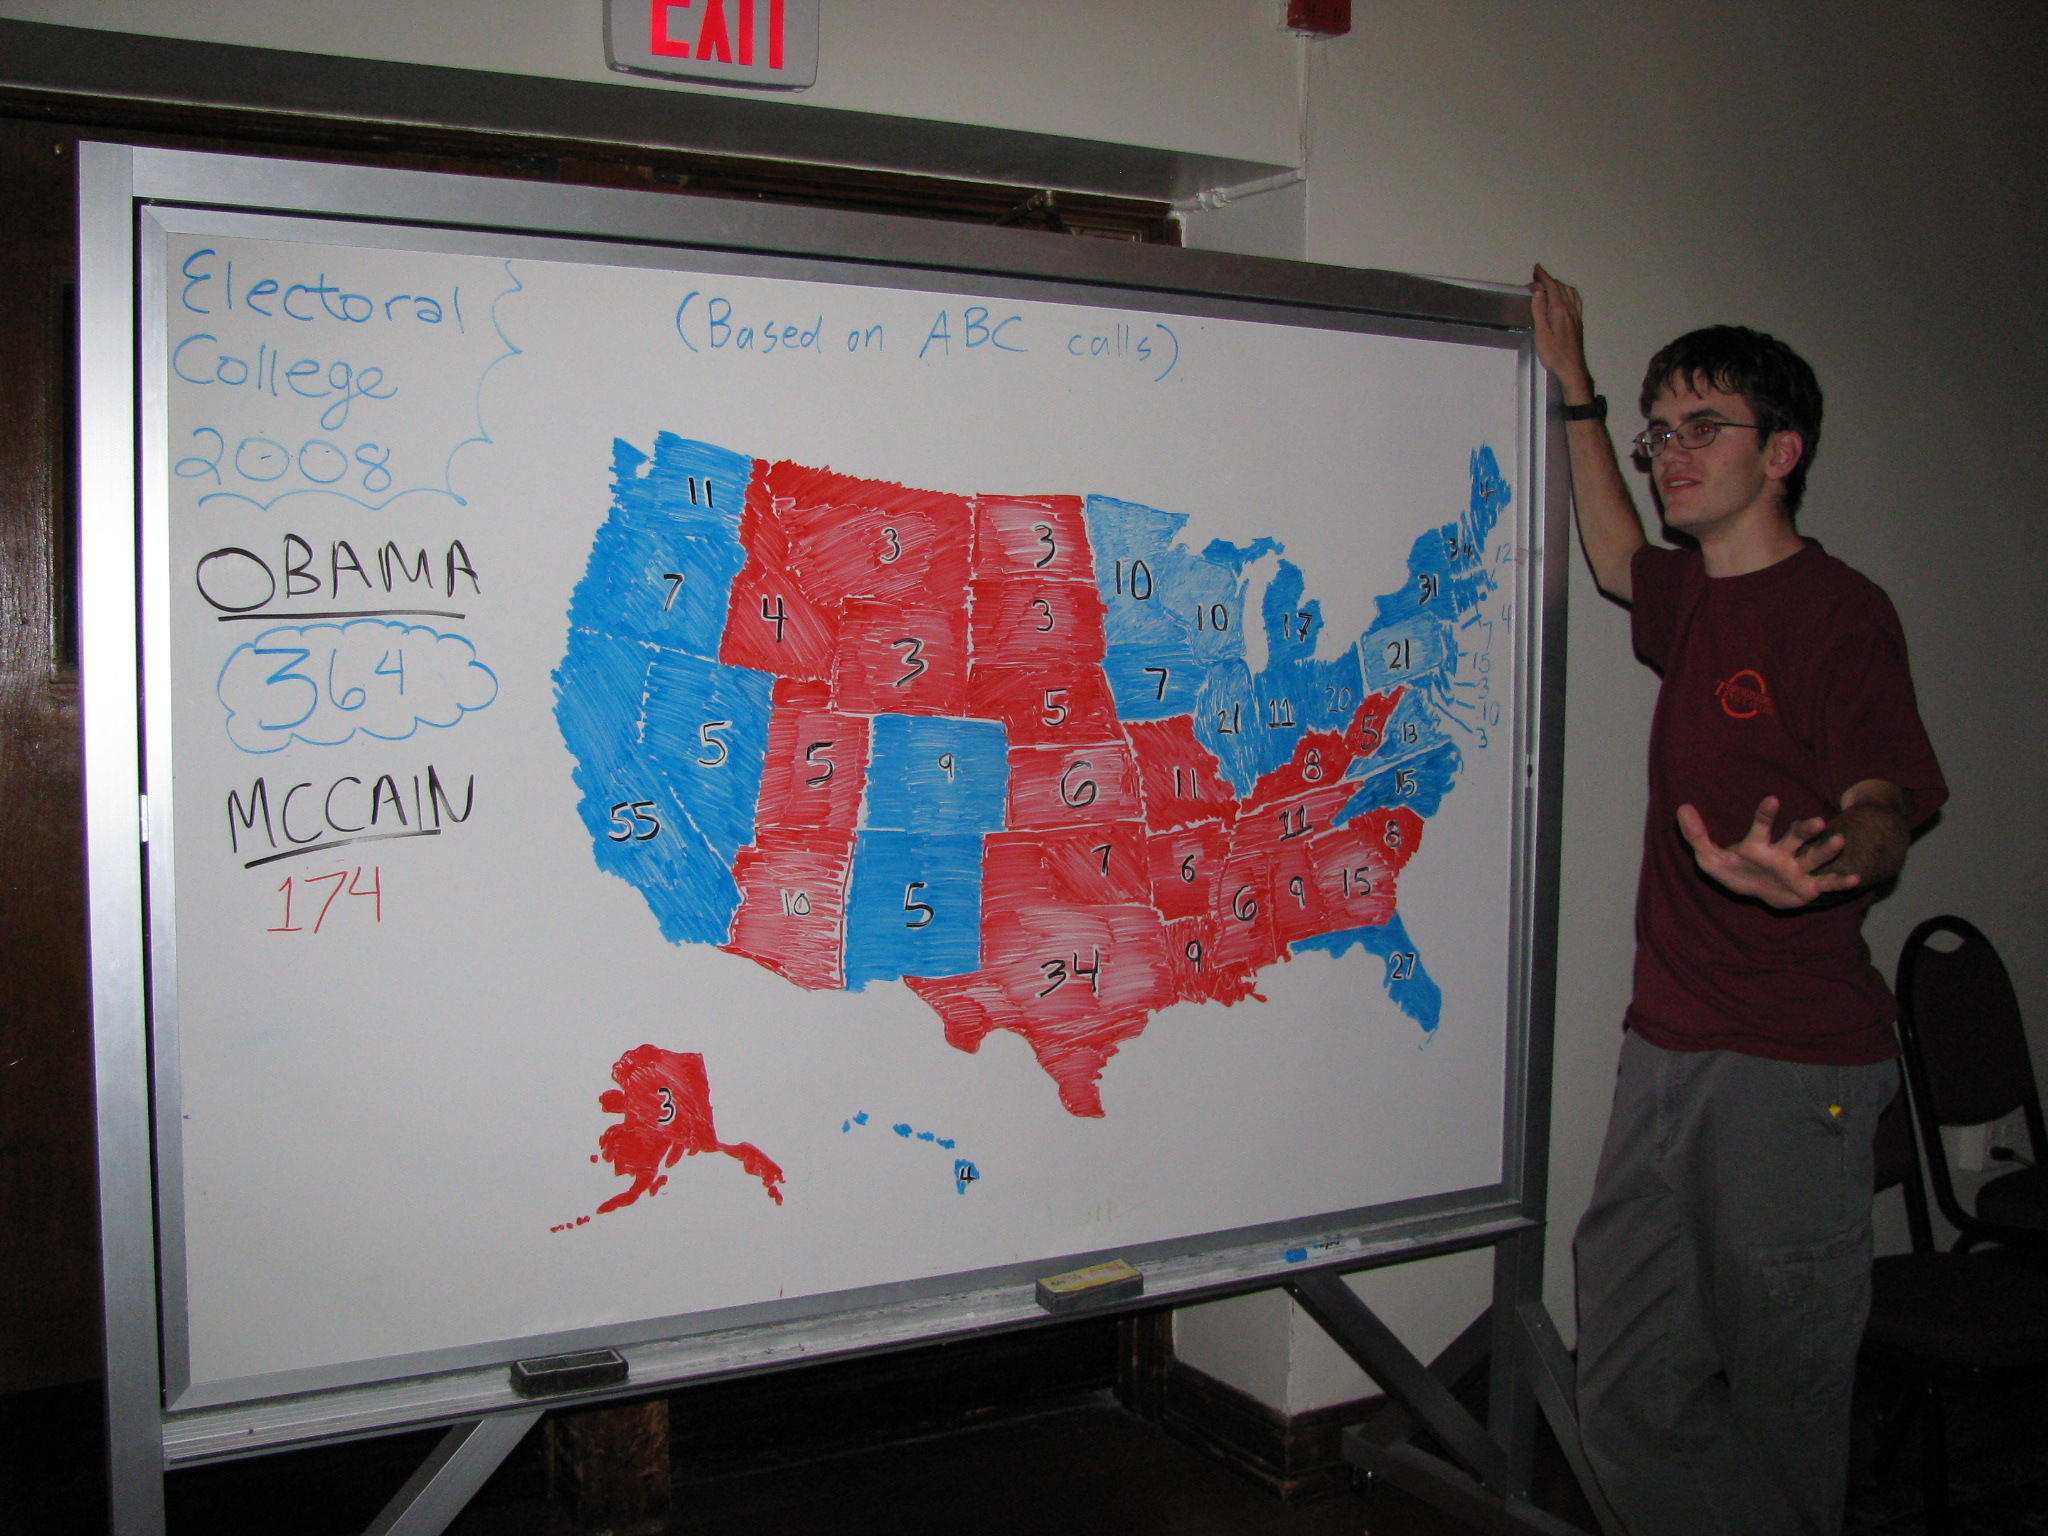 EXIT
Electoral
College
2008
(Based on ABC calls)
OBAMA
364
MCCAIN
174
11
7
55
5
4
3
3
5
10
9
5
3
3
5
6
7
34
10
7
11
6
9
10
21
17
11
20
8
11
6
9
15
8
27
15
13
5
21
31
3
4
4
12
4
7
15
3
10
3
3
4